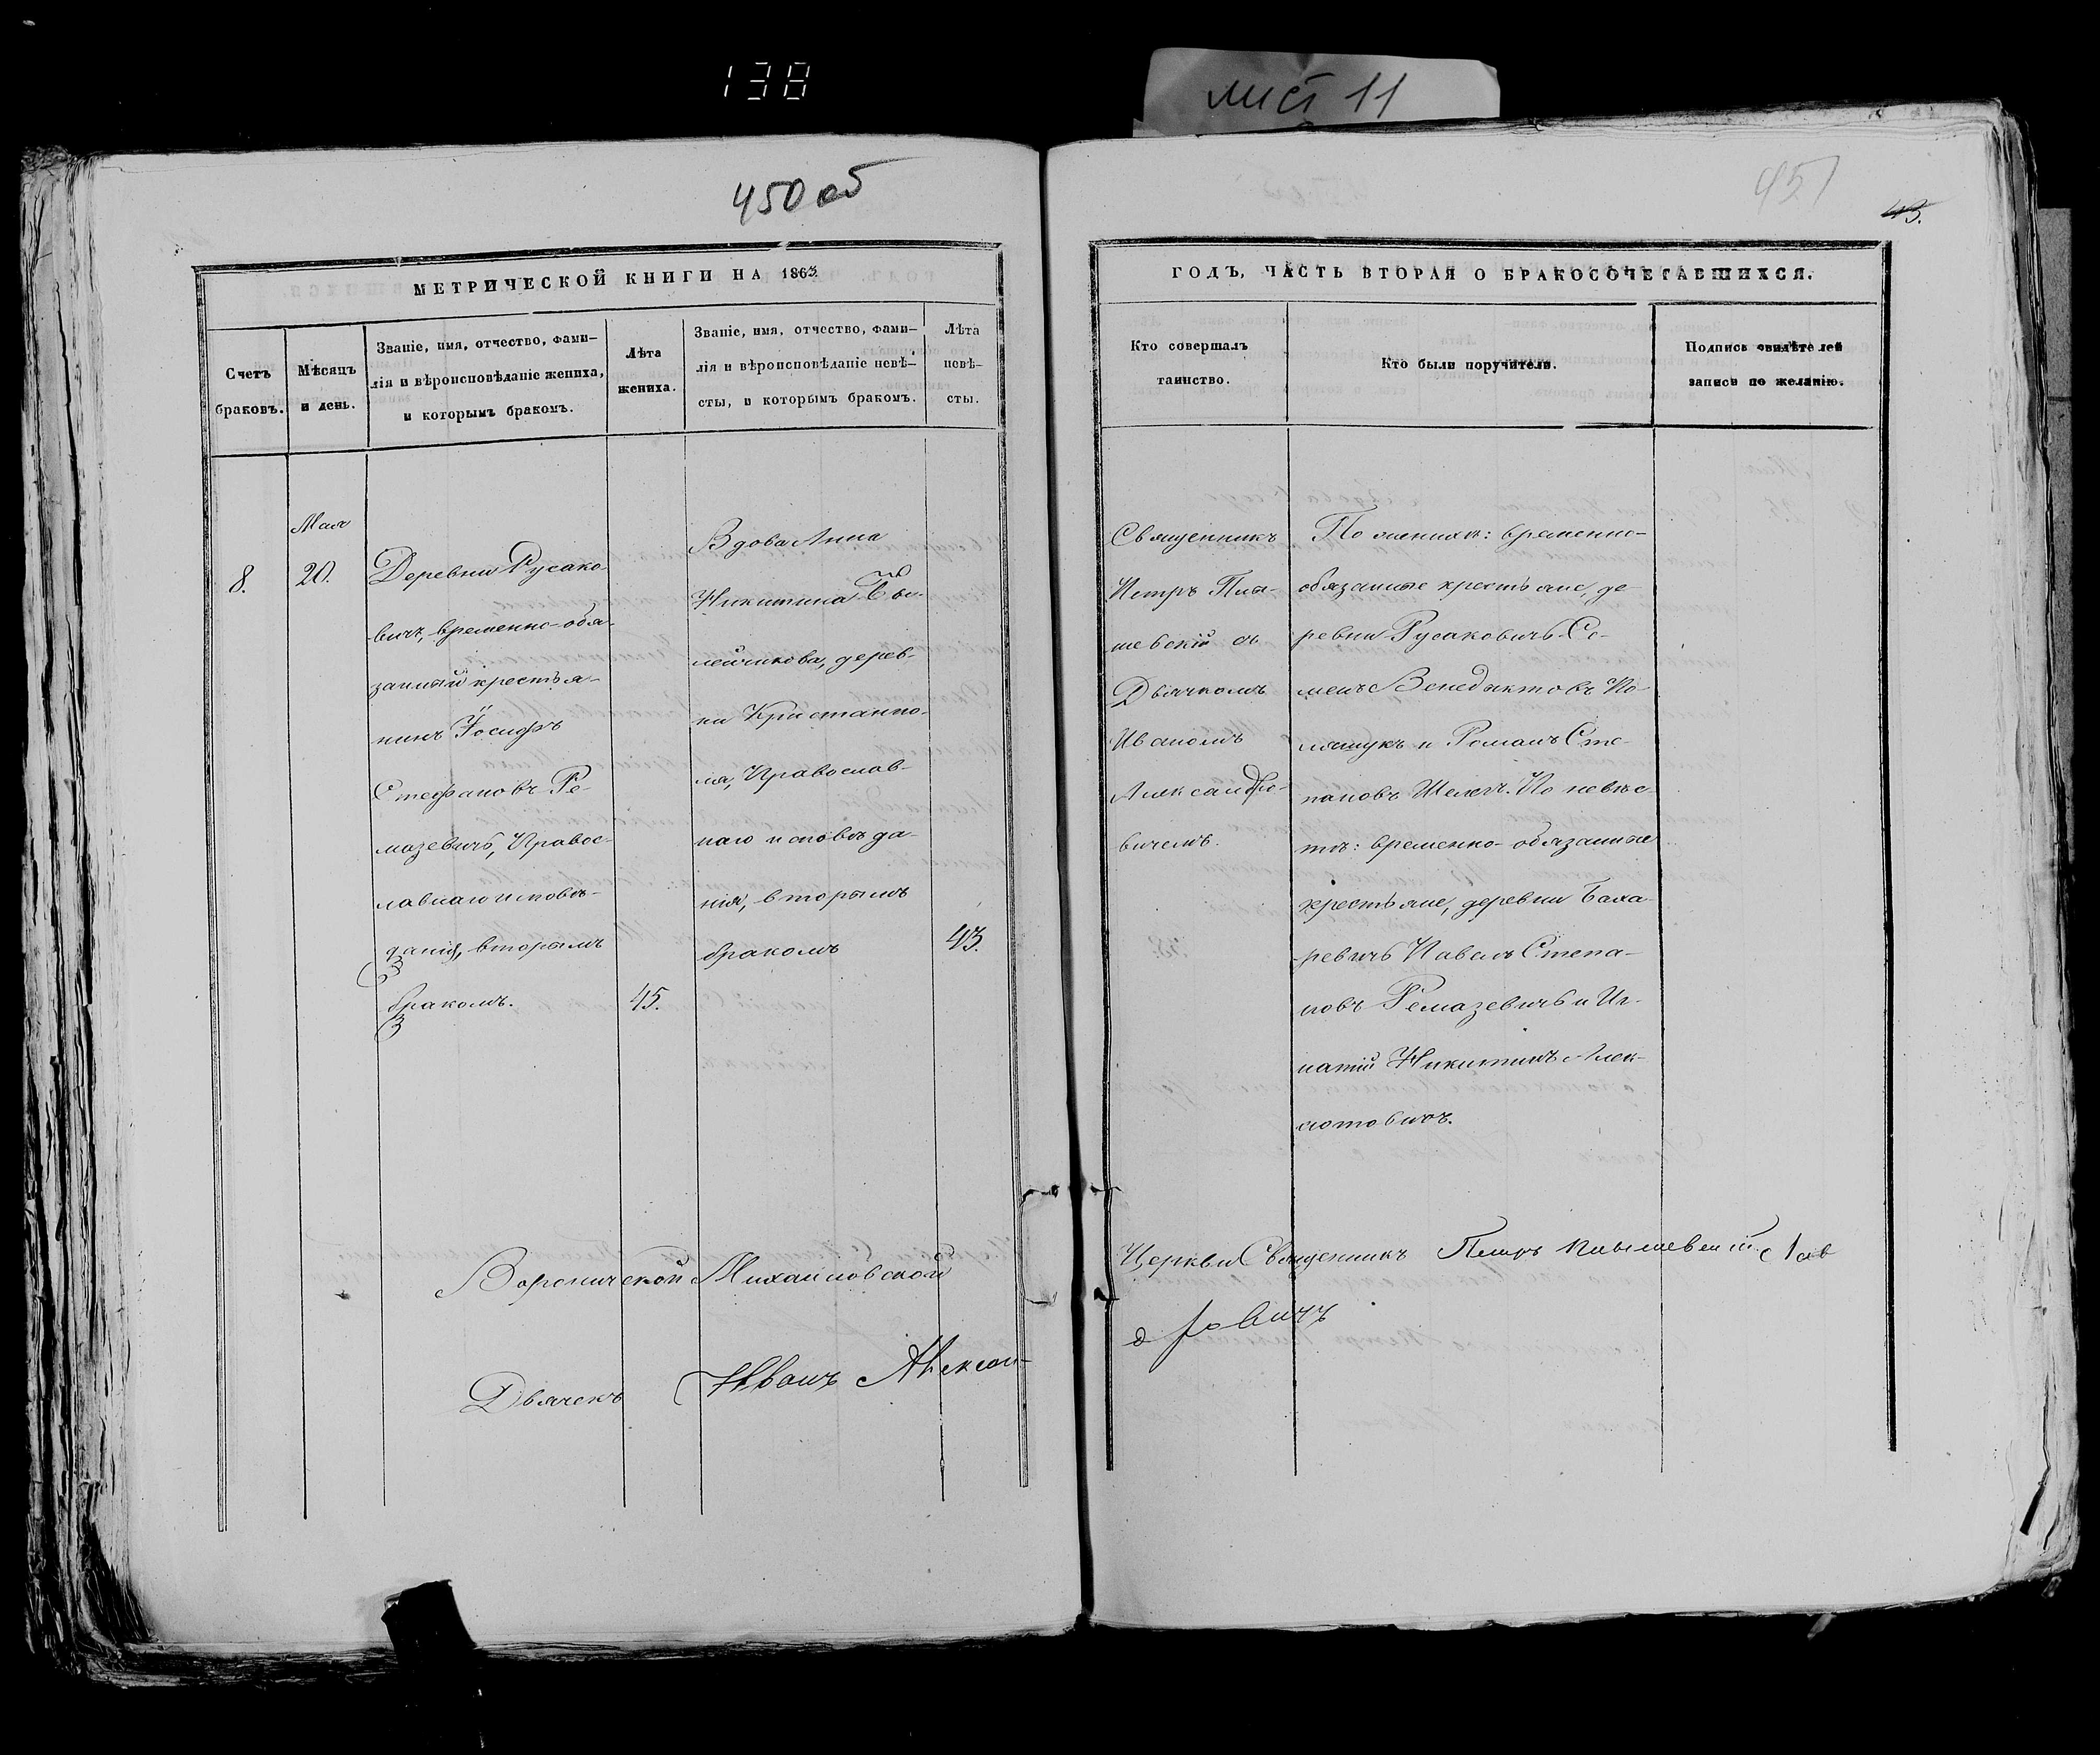 138
лист 11
450 об
451
43.
МЕТРИЧЕСКОЙ КНИГИ НА 1863
ГОДЪ, ЧАСТЬ ВТОРАЯ О БРАКОСОЧЕТАВШИХСЯ.
Счетъ
браковъ.
Мѣсяцъ
и день.
Званіе, имя, отчество, фами-
лія и вѣроисповѣданіе жениха,
и которымъ бракомъ.
Лѣта
жениха.
Званіе, имя, отчество, фами-
лія и вѣроисповѣданіе невѣ-
сты, и которымъ бракомъ.
Лѣта
невѣ-
сты.
Кто совершалъ
таинство.
Кто были поручители.
Подпись свидѣтелей
записи по желанію.
8.
Мая
20.
Деревни Русако-
вичъ, временно-обя-
занный крестья-
нинъ Іосифъ
Стефановъ Ре-
мазевичъ, Правос-
лавнаго исповѣ-
данія, вторымъ
бракомъ.
45.
Вдова Анна
Никитина
лейчикова, дерев-
ни Кристанпо-
ля, Православ-
наго исповѣда-
нія, вторымъ
бракомъ
43.
Священникъ
Петръ Плы-
шевскій съ
Дьячкомъ
Иваномъ
Александро-
вичемъ.
По женихѣ: временно-
обязанные крестьяне, де
ревни Русаковичъ Се-
менъ Венедыктовъ По-
лящукъ и Романъ Сте-
пановъ Шелегъ. По невѣс-
тѣ: временно-обязанные
крестьяне, деревни Баха-
ревичъ Павелъ Степа-
новъ Ремазевичъ и Иг-
натій Никитинъ Алек-
сютовичъ.
Вороничской Михайловской
Церкви Священникъ Петръ Плышевскій
Дьячекъ Иванъ Алексан-
дровичъ